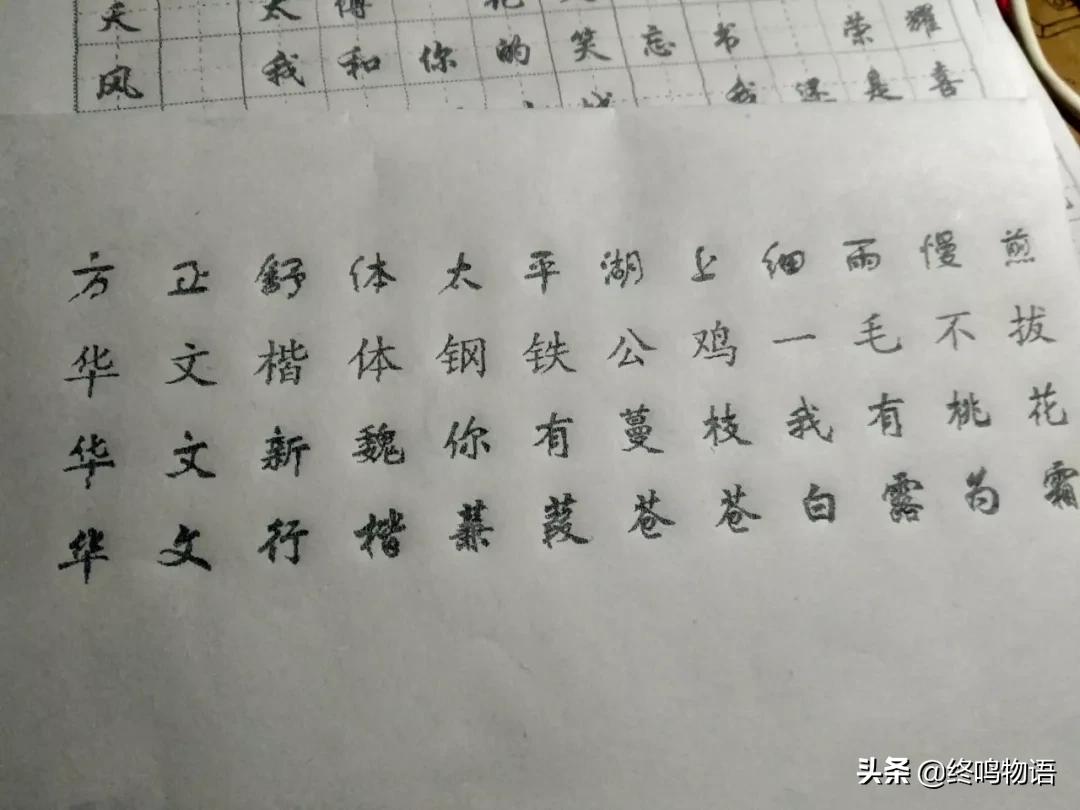 天 太
风 我和你的笑忘书 荣耀
我还是喜
方正舒体太平湖上细雨慢煎
华文楷体钢铁公鸡一毛不拔
华文新魏你有蔓枝我有桃花
华文行楷蒹葭苍苍白露为霜
头条 @终鸣物语